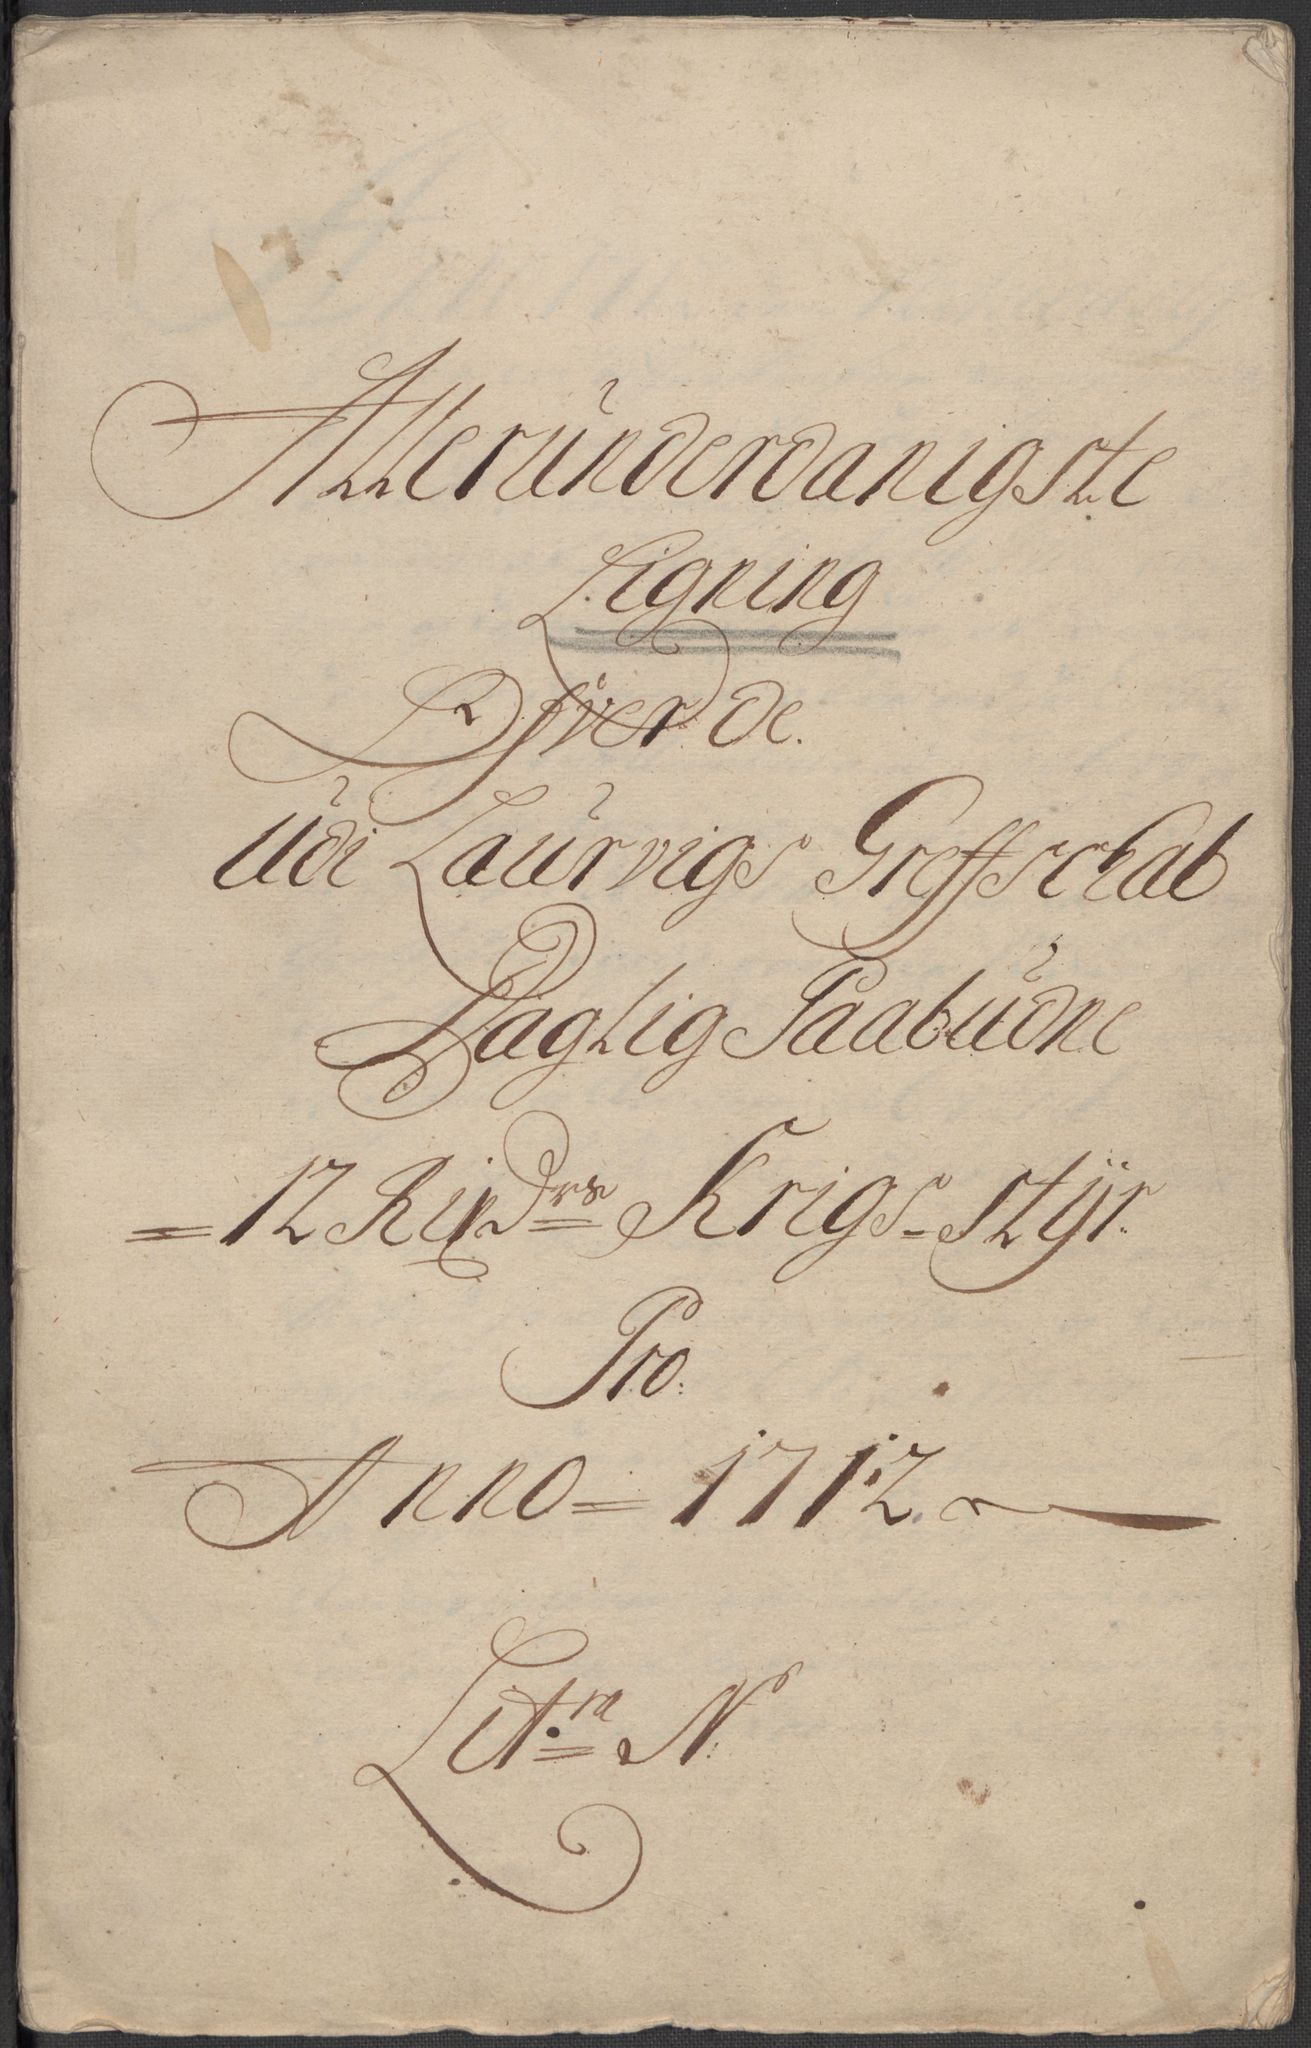 Allerunderdanigste
Ligning
Ofver de.
Udi Laurvigs Greffschab
Daglig Paabudne
= 12 Rix Drs Krigs-styr.
Pro:
Anno = 1712.
Litra N: